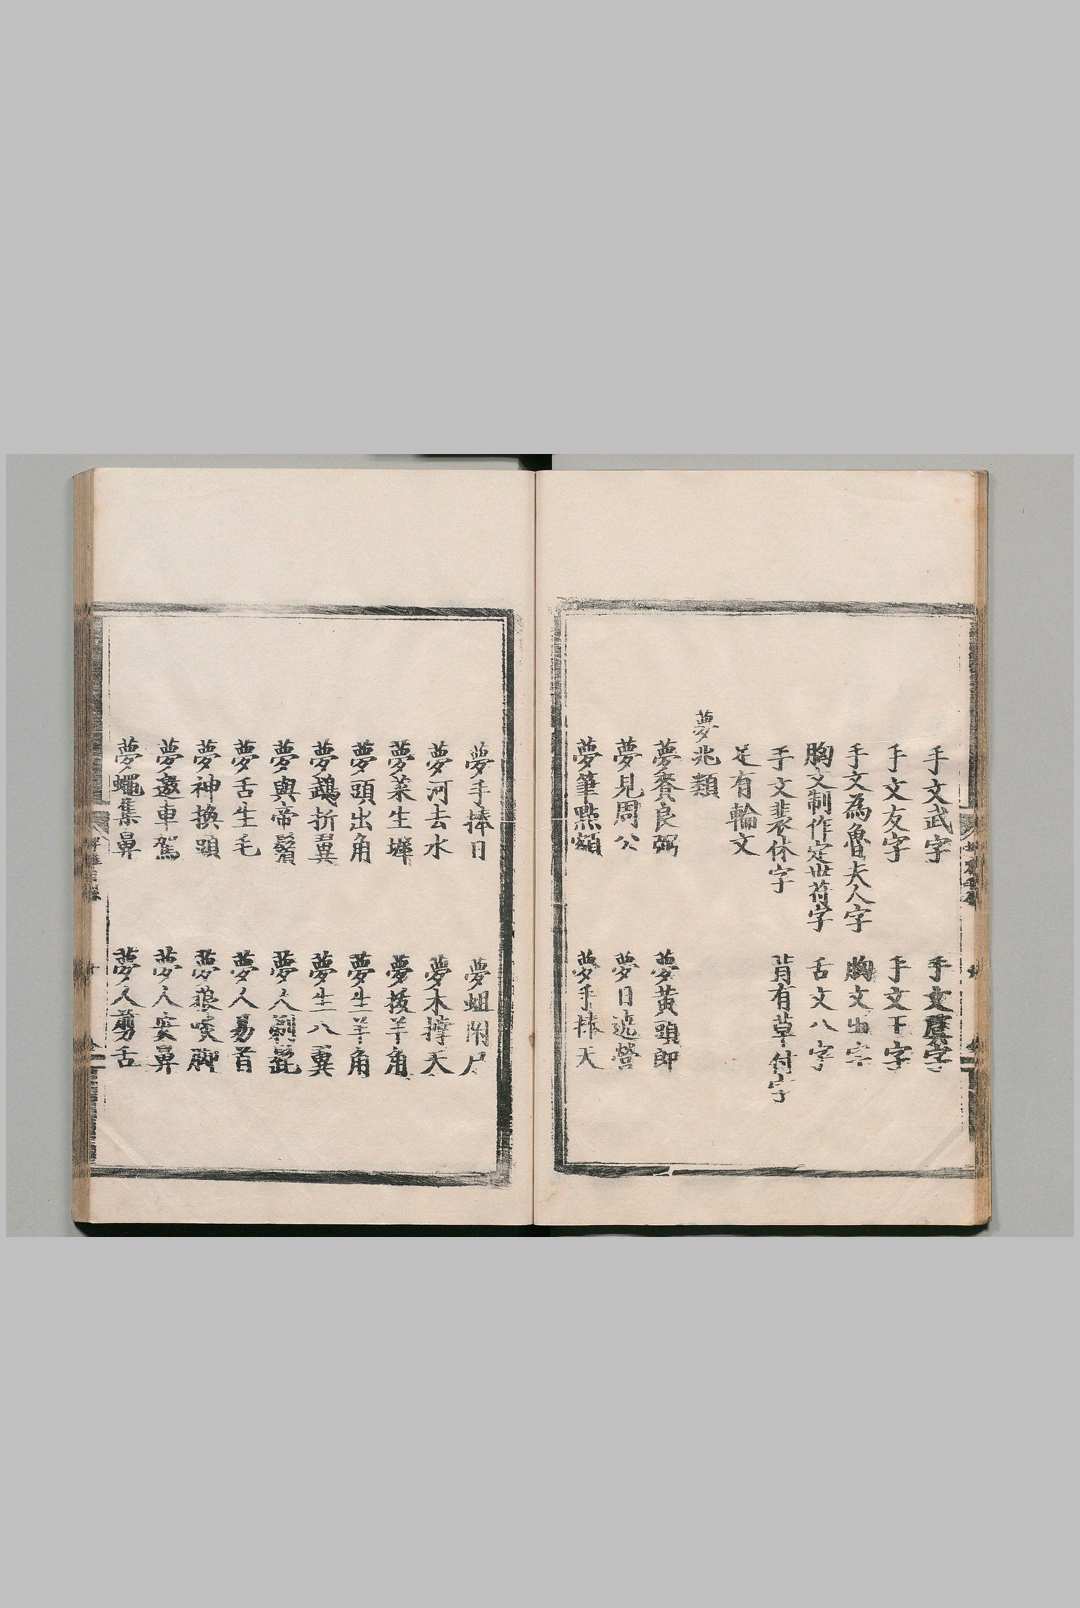 手文武字　手文虞字
手文友字　手文下字
手文為魯夫人字　胸文出字
胸文制作定世符字　舌文八字
手文裴休字　背有草付字
足有輪文
夢兆類
夢賚良弼　夢黃頭郎
夢見周公　夢日遶營
夢筆點額　夢手捧天
夢手捧日　夢蛆附尸
夢河去水　夢木撐天
夢菜生墀　夢拔羊角
夢頭出角　夢生羊角
夢鵡折翼　夢生八翼
夢與帝鬚　夢人剃髭
夢舌生毛　夢人易首
夢神換頭　夢狼啖脚
夢邀車駕　夢人安鼻
夢蠅集鼻　夢人剪舌